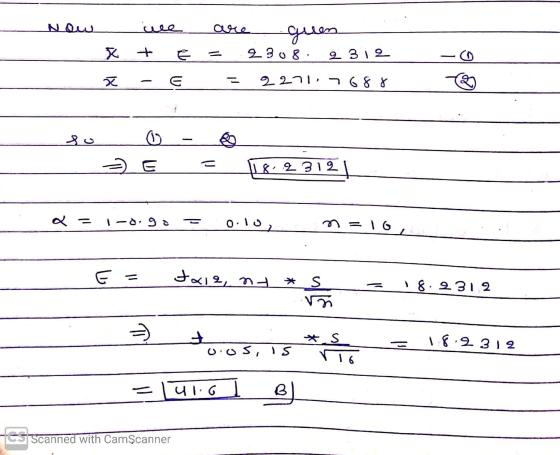 Now we are given
x̄ + E = 2308.2312 —①
x̄ - E = 2271.7688 —②
so ① - ②
⇒ E = 18.2312
α = 1-0.90 = 0.10, n = 16,
E = tα/2, n-1 * S/√n = 18.2312
⇒ t0.05, 15 * S/√16 = 18.2312
= 41.6 B)
CS Scanned with CamScanner